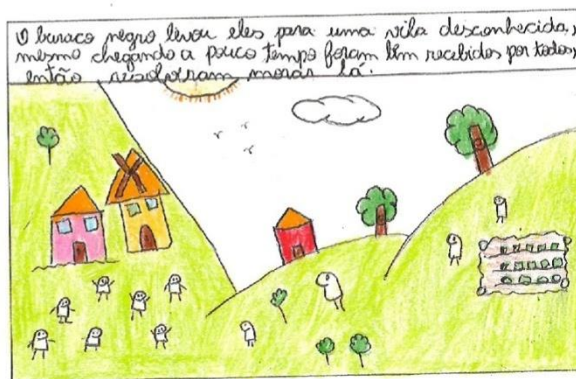 O buraco negro levou eles para uma vila desconhecida,
mesmo chegando a pouco tempo foram bem recebidos por todos,
então resolveram morar lá.